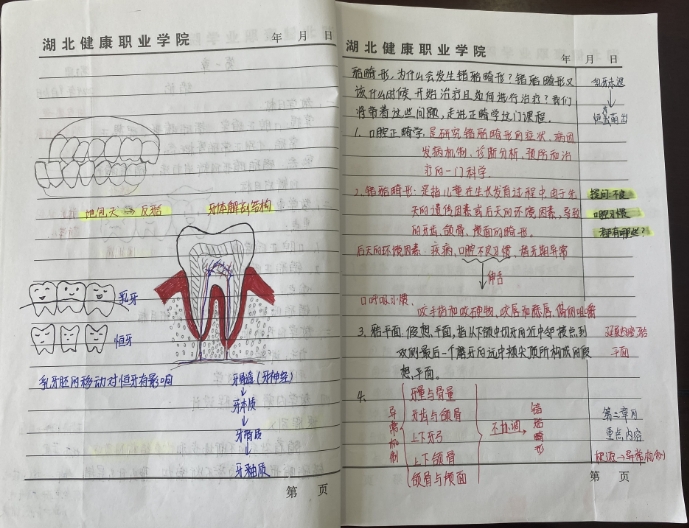 湖北健康职业学院
年 月 日
地包天 → 反𬌗
牙体解剖结构
乳牙
恒牙
乳牙胚的移动对恒牙有影响
牙髓(牙神经)
牙本质
牙骨质
牙釉质
第 页
湖北健康职业学院
年 月 日
错𬌗畸形,为什么会发生错𬌗畸形?错𬌗畸形又
该什么时候开始治疗且如何进行治疗?我们
将带着这些问题,走进正畸学这门课程。
1. 口腔正畸学:是研究错𬌗畸形的症状、病因
发病机制、诊断分析、预防和治
疗的一门科学。
2. 错𬌗畸形:是指儿童在生长发育过程中由于先
天的遗传因素或后天的环境因素,导致
的牙齿、颌骨、颅面的畸形。
提问:不良
口腔习惯
都有哪些?
后天的环境因素:疾病、口腔不良习惯、替牙期异常
口呼吸习惯、
3. 𬌗平面:假想平面,指从下颌中切牙近中邻接点到
双侧最后一个磨牙的远中颊尖顶所构成的假
想平面。
平面
4.
异常机制
牙量与骨量
牙齿与颌骨
上下牙弓
上下颌骨
颌骨与颅面
不协调
错𬌗畸形
第二章的
重点内容
第 页